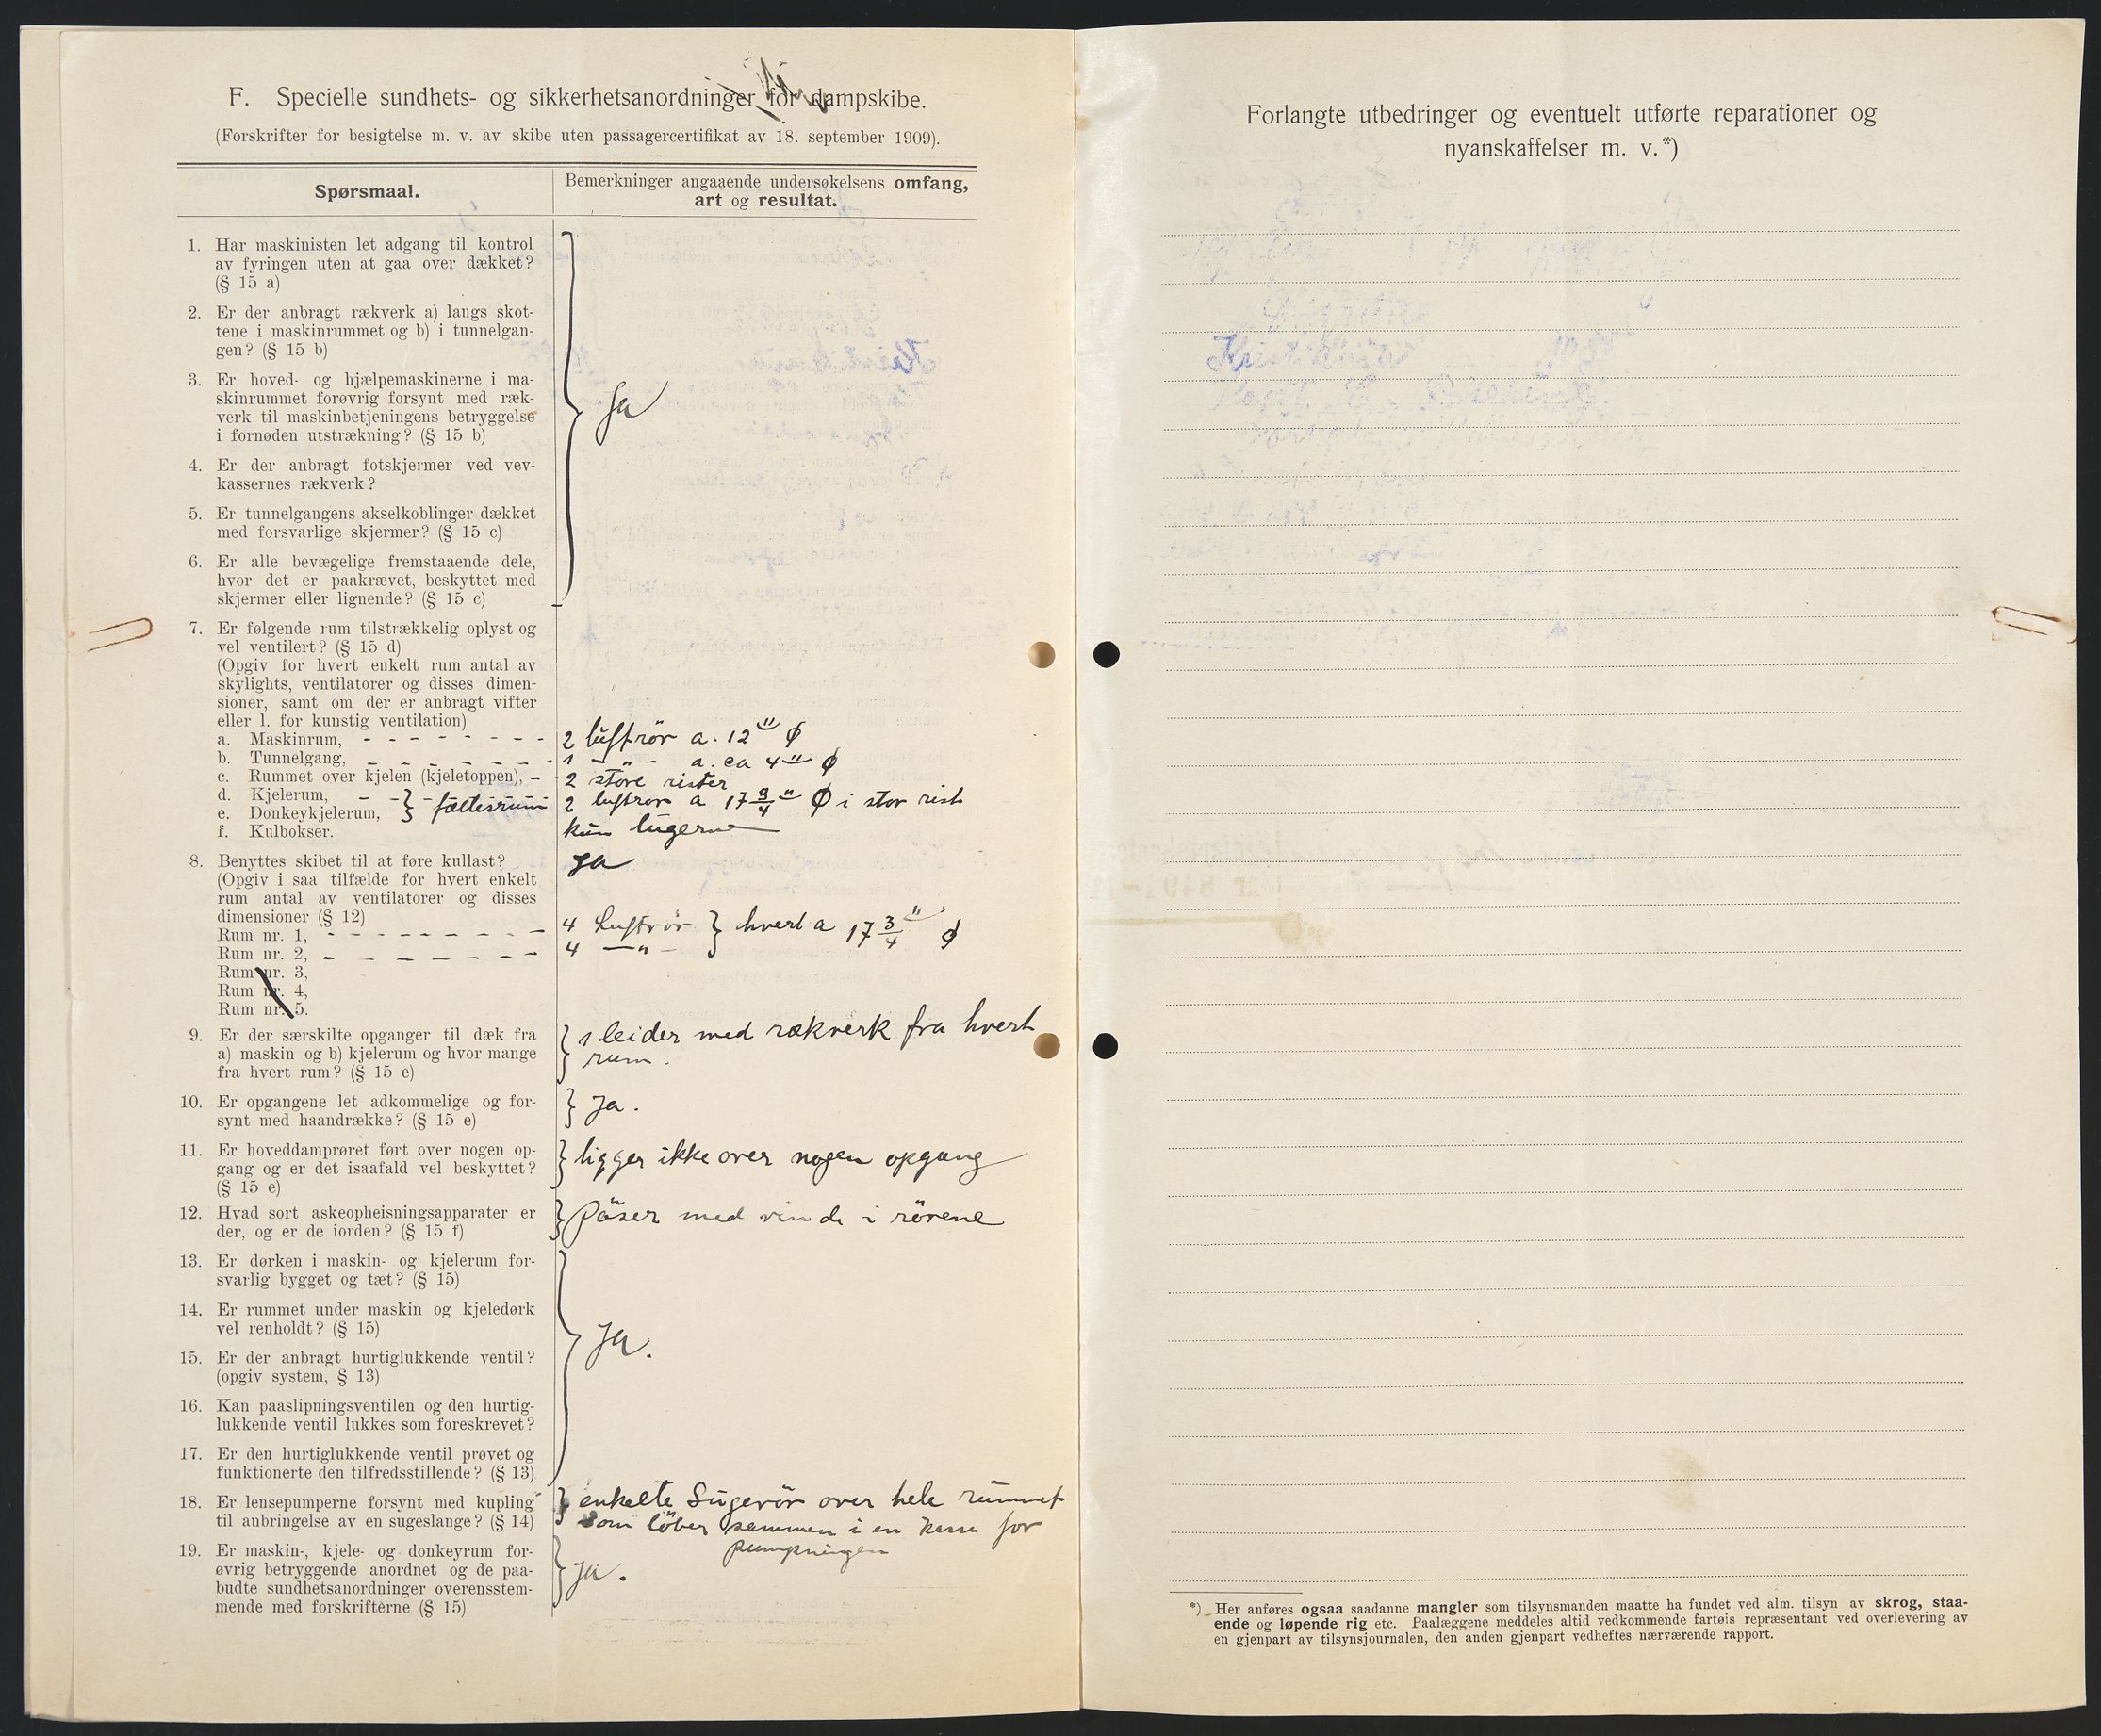 F. Specielle sundhets- og sikkerhetsanordninger for dampskibe.
(Forskrifter for besigtelse m. v. av skibe uten passagercertifikat av 18. september 1909).
Spørsmaal.
Bemerkninger angaaende undersøkelsens omfang,
art og resultat.
1. Har maskinisten let adgang til kontrol
av fyringen uten at gaa over dækket?
(§ 15 a)
2. Er der anbragt rækverk a) langs skot-
tene i maskinrummet og b) i tunnelgan-
gen? (§ 15 b)
3. Er hoved- og hjælpemaskinerne i ma-
skinrummet forøvrig forsynt med ræk-
verk til maskinbetjeningens betryggelse
i fornøden utstrækning? (§ 15 b)
Ja
4. Er der anbragt fotskjermer ved vev-
kassernes rækverk?
5. Er tunnelgangens akselkoblinger dækket
med forsvarlige skjermer? (§ 15 c)
6. Er alle bevægelige fremstaaende dele,
hvor det er paakrævet, beskyttet med
skjermer eller lignende? (§ 15 c)
7. Er følgende rum tilstrækkelig oplyst og
vel ventilert? (§ 15 d)
(Opgiv for hvert enkelt rum antal av
skylights, ventilatorer og disses dimen-
sioner, samt om der er anbragt vifter
eller l. for kunstig ventilation)
a. Maskinrum, - - - - - - - - 2 luftrör a. 12" ϕ
b. Tunnelgang, - - - - - - - 1 - " - a. ca 4" ϕ
c. Rummet over kjelen (kjeletoppen), - 2 störe rister
d. Kjelerum, - - } - fællesrum 2 luftrör a 17 3/4" ϕ i stor rist
e. Donkeykjelerum,
f. Kulbokser. kun lugerne
8. Benyttes skibet til at føre kullast? Ja
(Opgiv i saa tilfælde for hvert enkelt
rum antal av ventilatorer og disses
dimensioner (§ 12)
Rum nr. 1, - - - - - - - - - 4 Luftrör } hvert a 17 3/4" ϕ
Rum nr. 2, - - - - - - - - - 4 - " -
Rum nr. 3,
Rum nr. 4,
Rum nr. 5.
9. Er der særskilte opganger til dæk fra
a) maskin og b) kjelerum og hvor mange
fra hvert rum? (§ 15 e)
1 leider med rækverk fra hvert
rum.
10. Er opgangene let adkommelige og for-
synt med haandrække? (§ 15 e)
Ja.
11. Er hoveddamprøret ført over nogen op-
gang og er det isaafald vel beskyttet?
(§ 15 e)
ligger ikke over nogen opgang
12. Hvad sort askeopheisningsapparater er
der, og er de iorden? (§ 15 f)
Pöser med vinde i rörene
13. Er dørken i maskin- og kjelerum for-
svarlig bygget og tæt? (§ 15)
14. Er rummet under maskin og kjeledørk
vel renholdt? (§ 15)
Ja.
15. Er der anbragt hurtiglukkende ventil?
(opgiv system, § 13)
16. Kan paaslipningsventilen og den hurtig-
lukkende ventil lukkes som foreskrevet?
17. Er den hurtiglukkende ventil prøvet og
funktionerte den tilfredsstillende? (§ 13)
18. Er lensepumperne forsynt med kupling
til anbringelse av en sugeslange? (§ 14)
enkelte Sugerör over hele rummet
som löber sammen i en Kasse for
pumpningen
19. Er maskin-, kjele- og donkeyrum for-
øvrig betryggende anordnet og de paa-
budte sundhetsanordninger overensstem-
mende med forskrifterne (§ 15)
Ja.
Forlangte utbedringer og eventuelt utførte reparationer og
nyanskaffelser m. v.*)
*) Her anføres ogsaa saadanne mangler som tilsynsmanden maatte ha fundet ved alm. tilsyn av skrog, staa-
ende og løpende rig etc. Paalæggene meddeles altid vedkommende fartøis repræsentant ved overlevering av
en gjenpart av tilsynsjournalen, den anden gjenpart vedheftes nærværende rapport.